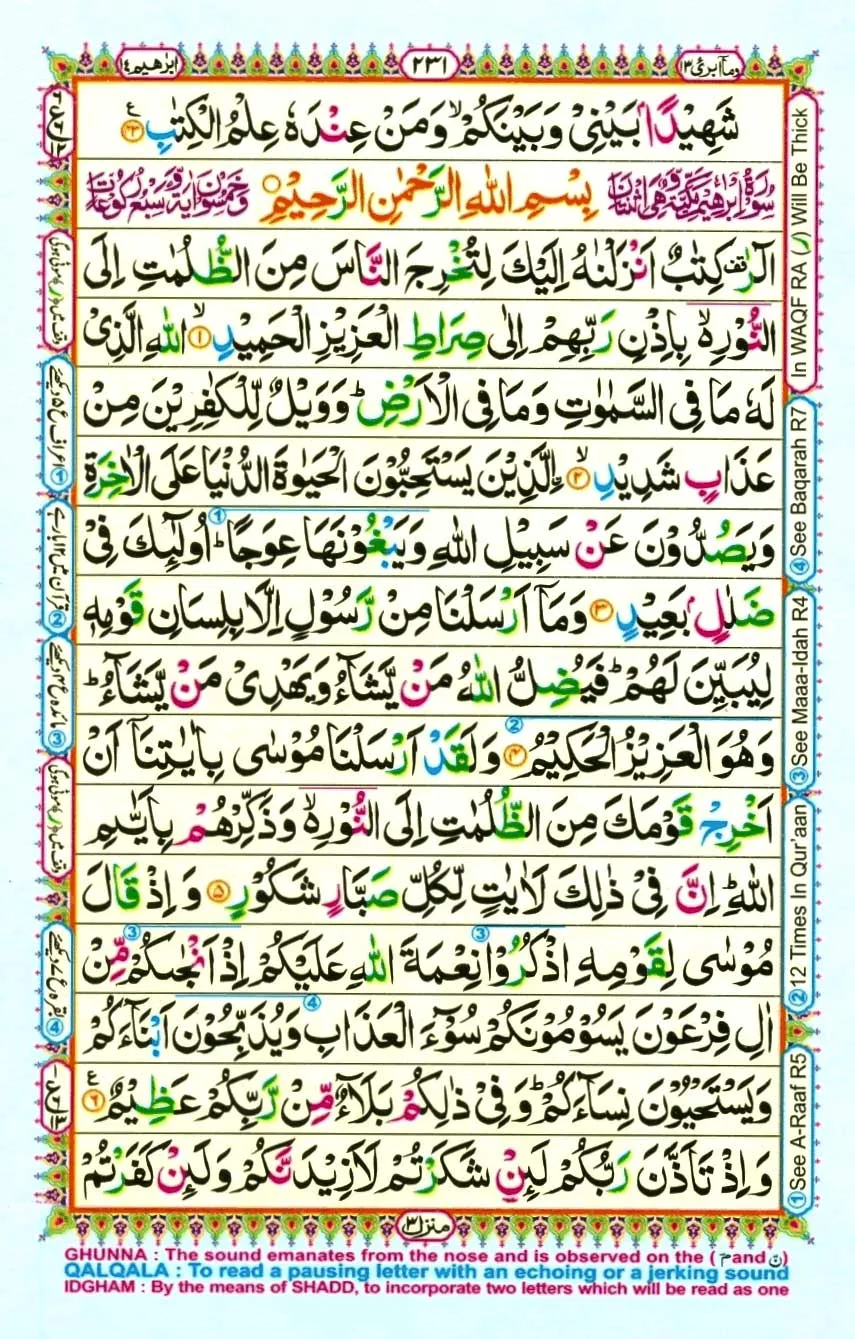 ابرٰهيم ١٤
٢٣١
وما ابرئ ١٣
شَهِيْدًۢا بَيْنِيْ وَبَيْنَكُمْ ۙ وَمَنْ عِنْدَهٗ عِلْمُ الْكِتٰبِ ﴿٤٣﴾
سُوْرَةُ اِبْرٰهِيْمَ مَكِّيَّةٌ وَّهِيَ اثْنَتَانِ بِسْمِ اللّٰهِ الرَّحْمٰنِ الرَّحِيْمِ وَخَمْسُوْنَ اٰيَةً وَّسَبْعُ رُكُوْعَاتٍ
الٓرٰ ۫ كِتٰبٌ اَنْزَلْنٰهُ اِلَيْكَ لِتُخْرِجَ النَّاسَ مِنَ الظُّلُمٰتِ اِلَى
النُّوْرِ ۙ۬ بِاِذْنِ رَبِّهِمْ اِلٰى صِرَاطِ الْعَزِيْزِ الْحَمِيْدِ ۙ﴿١﴾ اللّٰهِ الَّذِيْ
لَهٗ مَا فِي السَّمٰوٰتِ وَمَا فِي الْاَرْضِ ؕ وَوَيْلٌ لِّلْكٰفِرِيْنَ مِنْ
عَذَابٍ شَدِيْدِ ۙ﴿٢﴾ ۨالَّذِيْنَ يَسْتَحِبُّوْنَ الْحَيٰوةَ الدُّنْيَا عَلَى الْاٰخِرَةِ
وَيَصُدُّوْنَ عَنْ سَبِيْلِ اللّٰهِ وَيَبْغُوْنَهَا عِوَجًا ؕ اُولٰٓئِكَ فِيْ
ضَلٰلٍۭ بَعِيْدٍ ﴿٣﴾ وَمَآ اَرْسَلْنَا مِنْ رَّسُوْلٍ اِلَّا بِلِسَانِ قَوْمِهٖ
لِيُبَيِّنَ لَهُمْ ؕ فَيُضِلُّ اللّٰهُ مَنْ يَّشَآءُ وَيَهْدِيْ مَنْ يَّشَآءُ ؕ
وَهُوَ الْعَزِيْزُ الْحَكِيْمُ ﴿٤﴾ وَلَقَدْ اَرْسَلْنَا مُوْسٰى بِاٰيٰتِنَآ اَنْ
اَخْرِجْ قَوْمَكَ مِنَ الظُّلُمٰتِ اِلَى النُّوْرِ ۙ۬ وَذَكِّرْهُمْ بِاَيّٰىمِ
اللّٰهِ ؕ اِنَّ فِيْ ذٰلِكَ لَاٰيٰتٍ لِّكُلِّ صَبَّارٍ شَكُوْرٍ ﴿٥﴾ وَاِذْ قَالَ
مُوْسٰى لِقَوْمِهِ اذْكُرُوْا نِعْمَةَ اللّٰهِ عَلَيْكُمْ اِذْ اَنْجٰىكُمْ مِّنْ
اٰلِ فِرْعَوْنَ يَسُوْمُوْنَكُمْ سُوْٓءَ الْعَذَابِ وَيُذَبِّحُوْنَ اَبْنَآءَكُمْ
وَيَسْتَحْيُوْنَ نِسَآءَكُمْ ؕ وَفِيْ ذٰلِكُمْ بَلَآءٌ مِّنْ رَّبِّكُمْ عَظِيْمٌ ﴿٦﴾
وَاِذْ تَاَذَّنَ رَبُّكُمْ لَئِنْ شَكَرْتُمْ لَاَزِيْدَنَّكُمْ وَلَئِنْ كَفَرْتُمْ
منزل ٣
In WAQF RA (ر) Will Be Thick
④ See Baqarah R7
③ See Maaa-Idah R4
② 12 Times In Qur'aan
① See A-Raaf R5
① اعراف ع ٥ دیکھئے
② قرآن میں ١٢ بار ہے
③ مائدہ ع ٤ دیکھئے
④ بقرہ ع ٧ دیکھئے
GHUNNA : The sound emanates from the nose and is observed on the ( مّ and نّ )
QALQALA : To read a pausing letter with an echoing or a jerking sound
IDGHAM : By the means of SHADD, to incorporate two letters which will be read as one